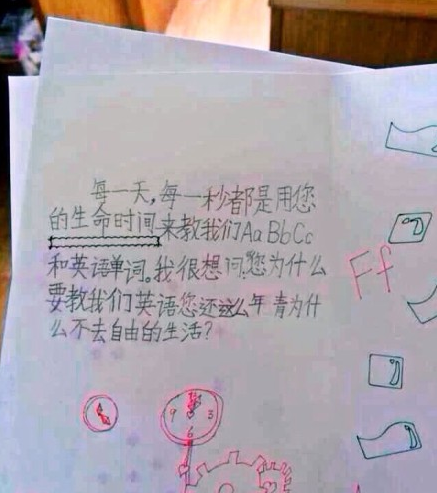 每一天，每一秒都是用您
的生命时间来教我们AaBbCc
和英语单词。我很想问，您为什么
要教我们英语您还这么年青为什
么不去自由的生活？
Ff
9 3
6